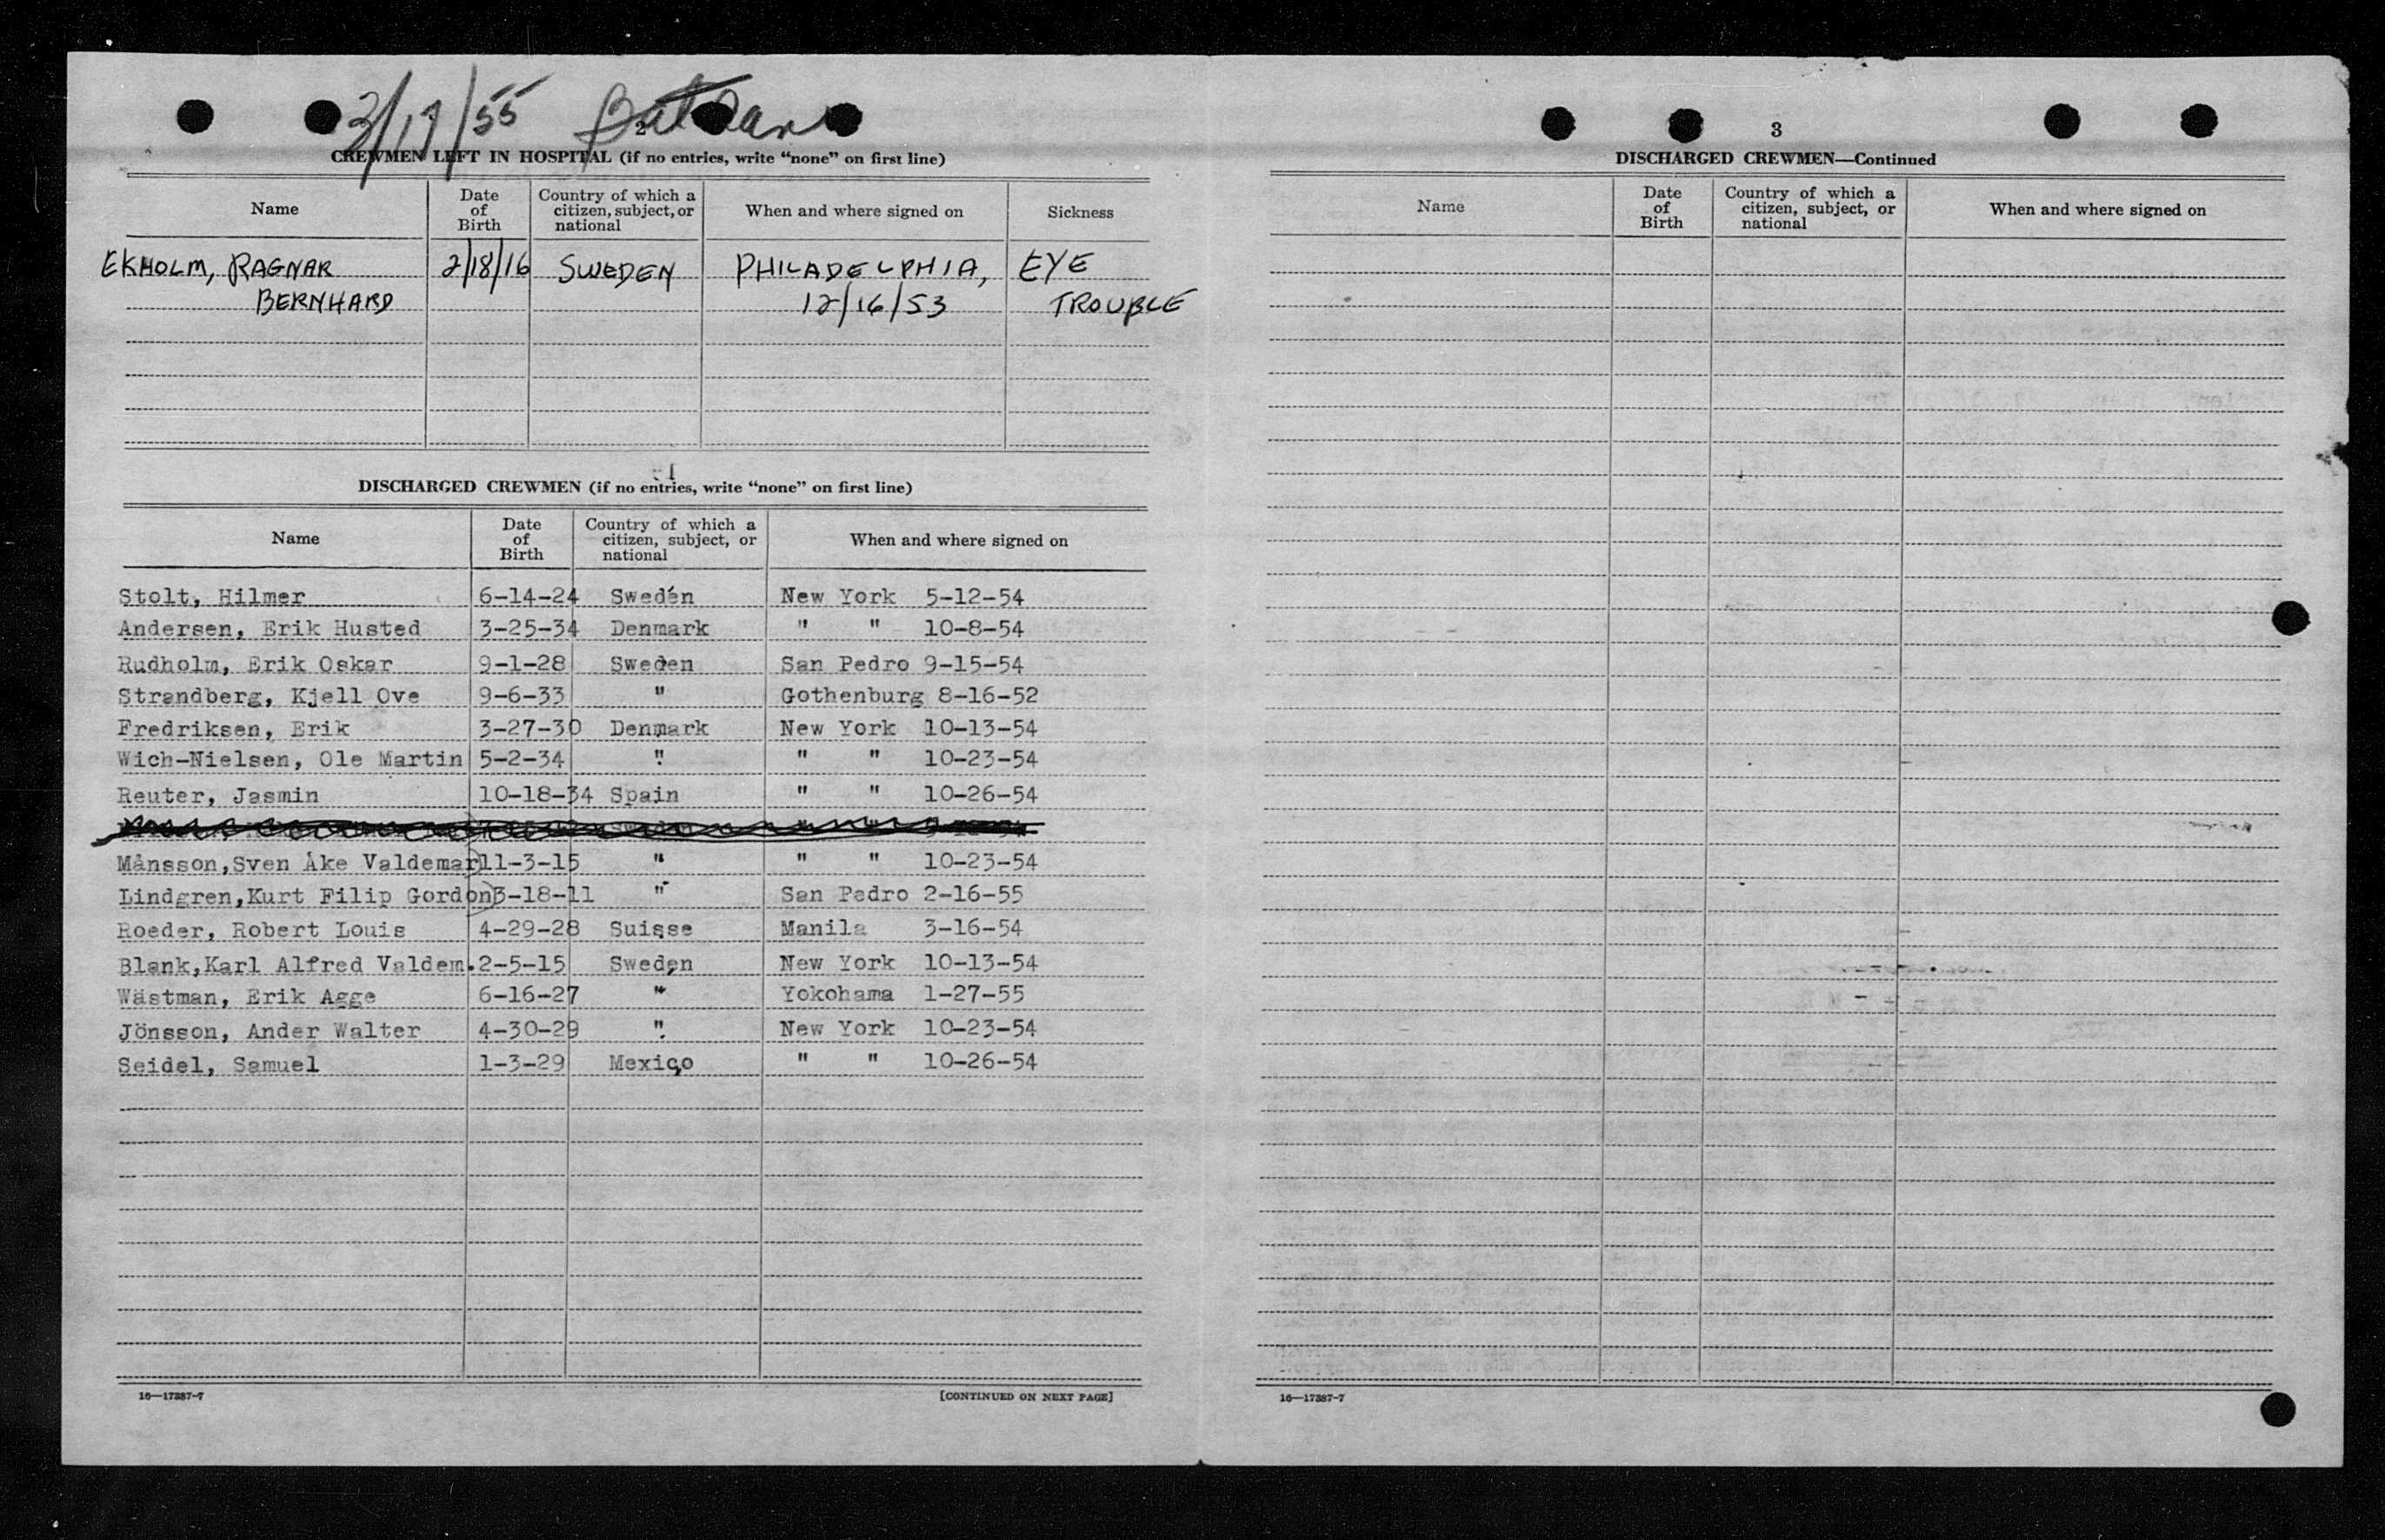 3/17/55 Bataan
2
CREWMEN LEFT IN HOSPITAL (if no entries, write “none” on first line)
Name Date of Birth Country of which a citizen, subject, or national When and where signed on Sickness
EKHOLM, RAGNAR 2/18/16 SWEDEN PHILADELPHIA, EYE
BERNHARD 12/16/53 TROUBLE
DISCHARGED CREWMEN (if no entries, write “none” on first line)
Name Date of Birth Country of which a citizen, subject, or national When and where signed on
Stolt, Hilmer 6-14-24 Sweden New York 5-12-54
Andersen, Erik Husted 3-25-34 Denmark " " 10-8-54
Rudholm, Erik Oskar 9-1-28 Sweden San Pedro 9-15-54
Strandberg, Kjell Ove 9-6-33 " Gothenburg 8-16-52
Fredriksen, Erik 3-27-30 Denmark New York 10-13-54
Wich-Nielsen, Ole Martin 5-2-34 " " " 10-23-54
Reuter, Jasmin 10-18-34 Spain " " 10-26-54
Månsson,Sven Åke Valdemar 11-3-15 " " " 10-23-54
Lindgren,Kurt Filip Gordon 3-18-11 " San Pedro 2-16-55
Roeder, Robert Louis 4-29-28 Suisse Manila 3-16-54
Blank,Karl Alfred Valdem. 2-5-15 Sweden New York 10-13-54
Wästman, Erik Agge 6-16-27 " Yokohama 1-27-55
Jönsson, Ander Walter 4-30-29 " New York 10-23-54
Seidel, Samuel 1-3-29 Mexico " " 10-26-54
16—17387-7 [CONTINUED ON NEXT PAGE]
3
DISCHARGED CREWMEN—Continued
Name Date of Birth Country of which a citizen, subject, or national When and where signed on
16—17387-7